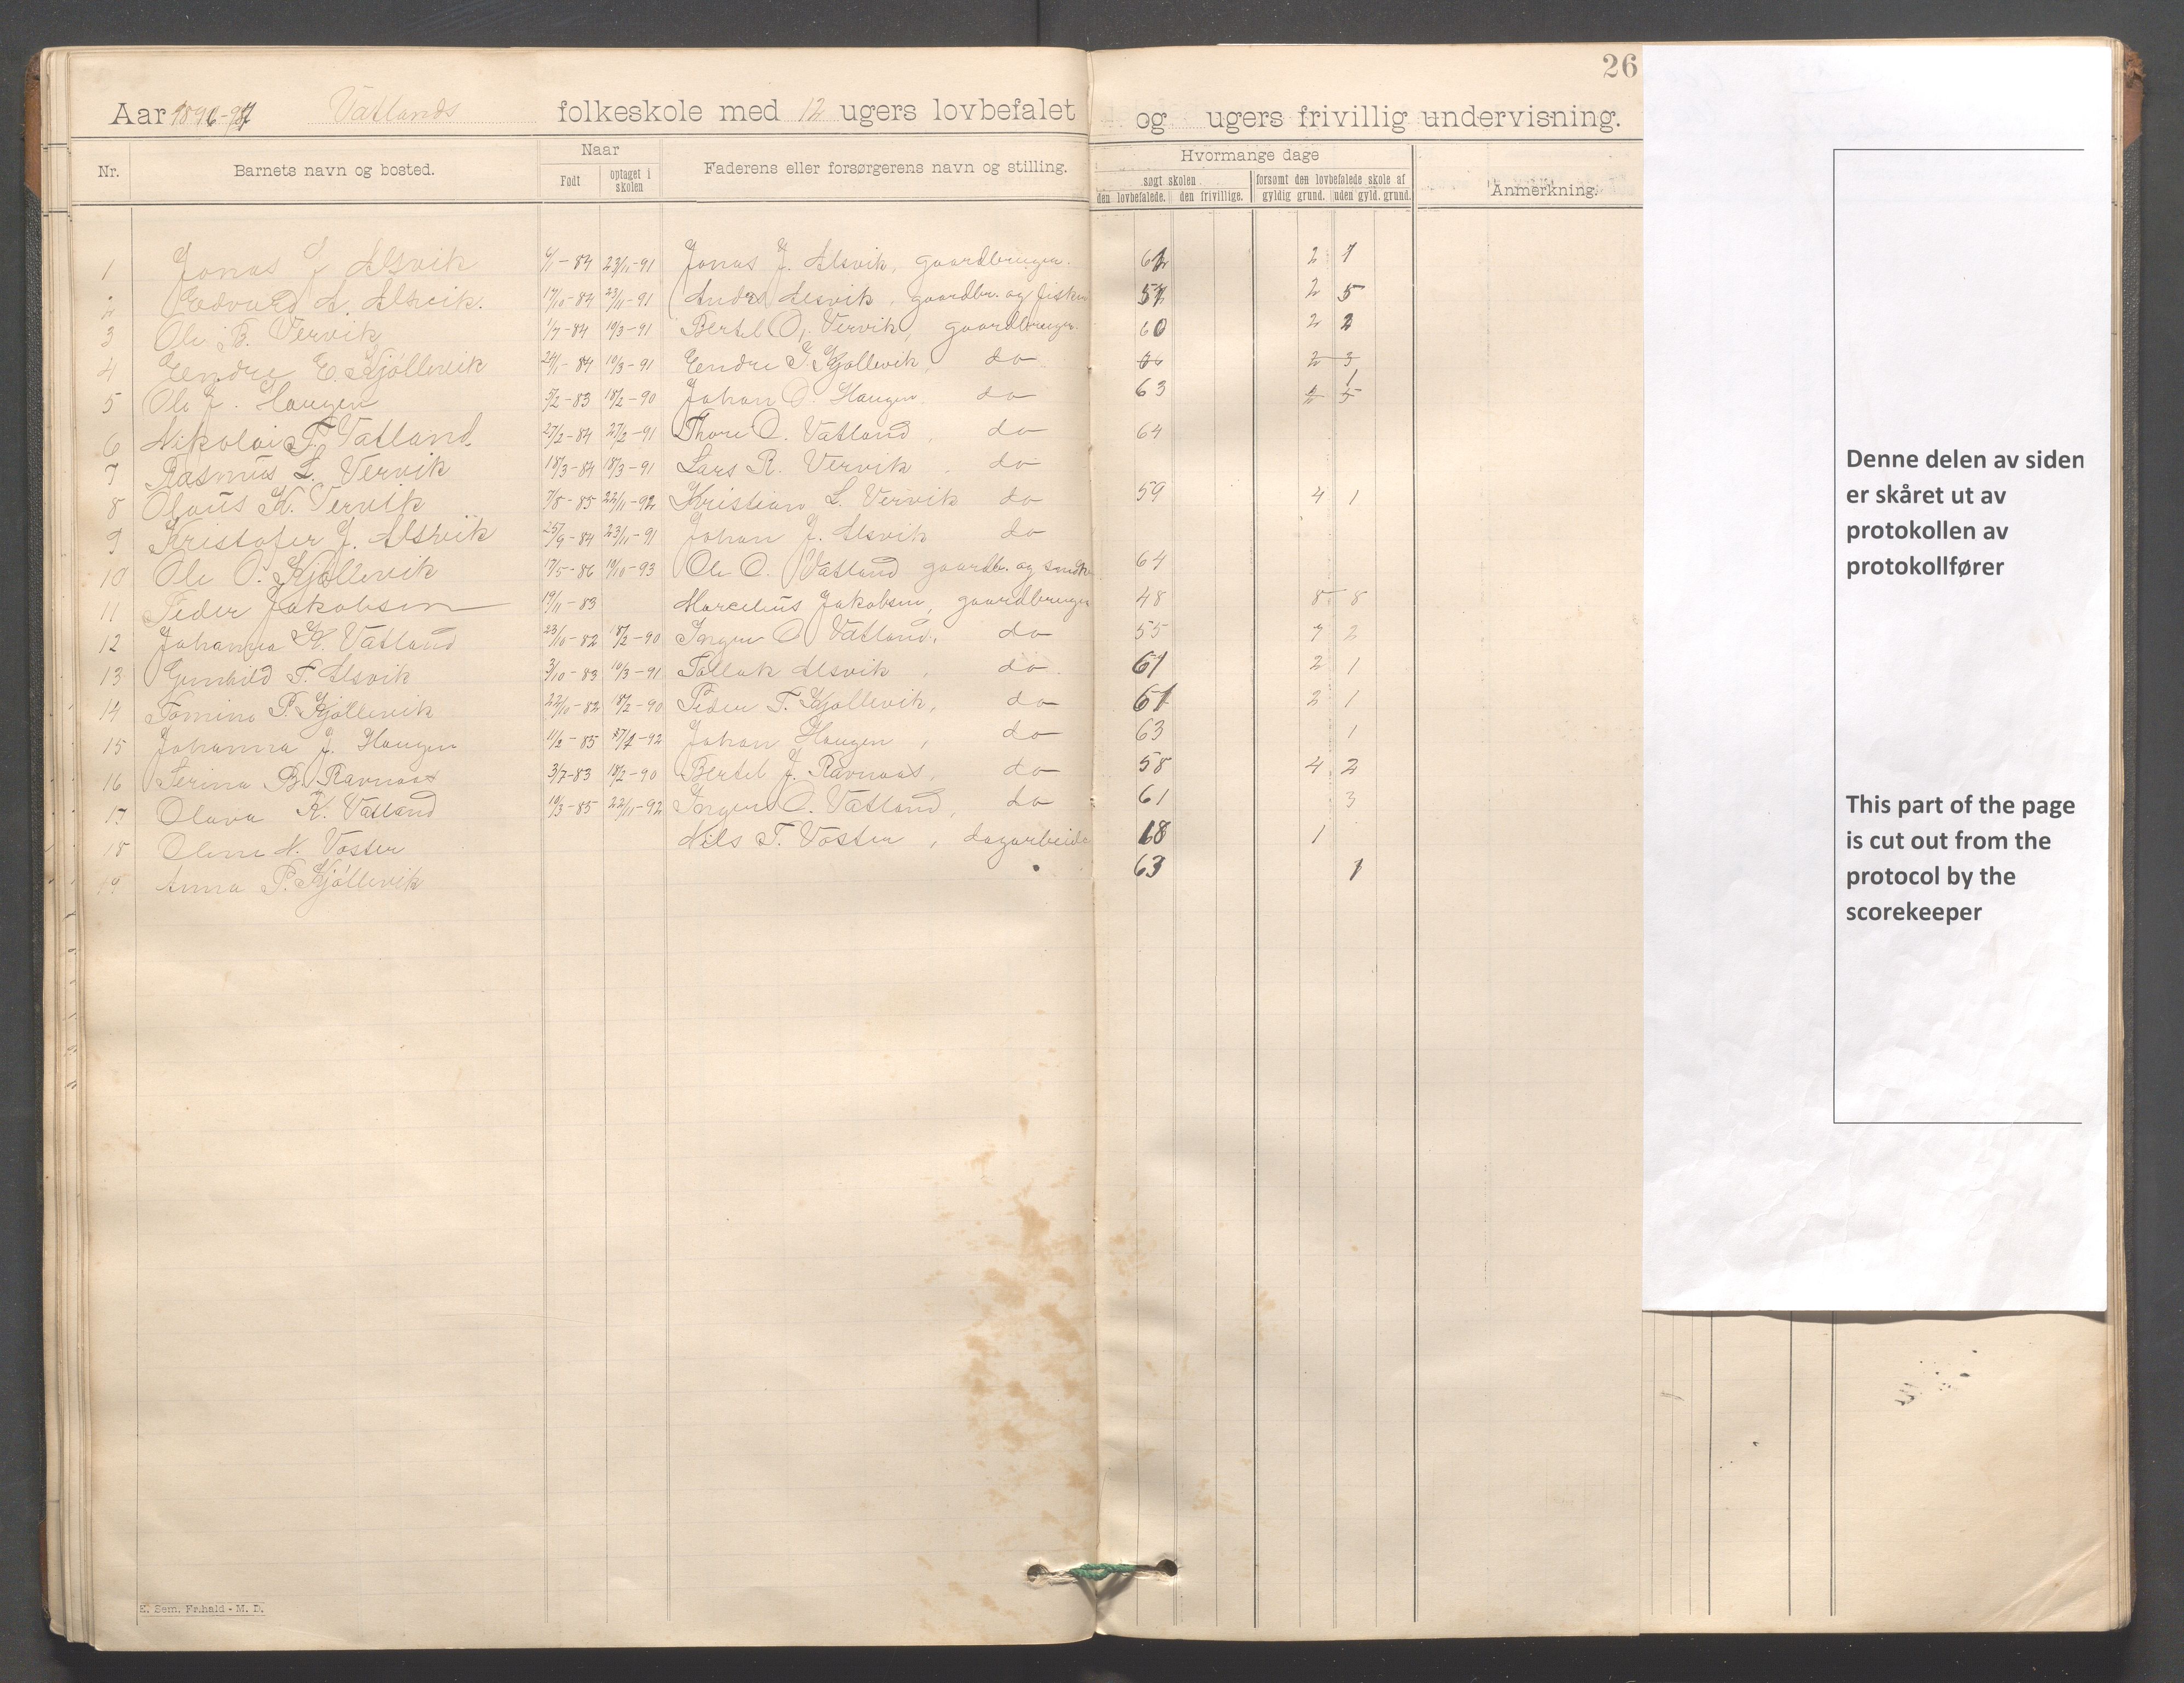 26
Aar 1896-97 Vatlands folkeskole med 12 ugers lovbefalet og ugers frivillig undervisning.
Nr. Barnets navn og bosted. Naar Faderens eller forsørgerens navn og stilling. Hvormange dage Anmerkning.
Født optaget i skolen søgt skolen forsømt den lovbefalede skole af
den lovbefalede. den frivillige. gyldig grund. uden gyld. grund.
1 Jonas J. Alsvik 23/11-91 Jonas J. Alsvik, gaardbruger. 2
2 Edvard A. Alsvik. 17/10-84 23/11-91 Alsvik, gaardbr. og fisker 2 5
3 Ole B. Vervik 1/7-84 10/3-91 Bertel O. Vervik, gaardbruger. 60 2 2
4 Endre E. Kjøllevik 24/1-84 10/3-91 Endre Kjøllevik, do 2 3
5 Ole J. Haugen 18/2-90 Johan O. Haugen, do 63 1
6 Nikolai T. Vatland 27/2-84 27/2-91 Thore O. Vatland, do 64
7 Rasmus L. Vervik 18/3-84 18/3-91 Lars R. Vervik, do
8 Olaus K. Vervik 7/8-85 22/11-92 Kristian L. Vervik do 59 4 1
9 Kristofer J. Alsvik 23/11-91 Johan J. Alsvik do
10 Ole O. Kjøllevik 17/5-86 10/10-93 Ole O. Vatland gaardb. og 64
11 Peder Jakobsen 19/11-83 Marcelius Jakobsen, gaardbruger 48 8 8
12 Johanna K. Vatland 23/10-82 18/2-90 O. Vatland, do 55 7 2
13 Gunhild T. Alsvik 3/10-83 10/3-91 Tollak Alsvik, do 61 2 1
14 Tomine P. Kjøllevik 22/10-82 18/2-90 Peder T. Kjøllevik, do 61 2 1
15 Johanna J. Haugen 11/2-85 Johan Haugen, do 63 1
16 Serina B. Ravnaas 3/7-83 18/2-90 Bertel J. Ravnaas, do 58 4 2
17 Olava K. Vatland 10/3-85 22/11-92 O. Vatland, do 61 3
18 Oline N. Vaster Nils T. Vaster, dagarbeide 68 1
19 Anna P. Kjøllevik 63 1
E. Sem, Fr.hald - M. D.
Denne delen av siden
er skåret ut av
protokollen av
protokollfører
This part of the page
is cut out from the
protocol by the
scorekeeper